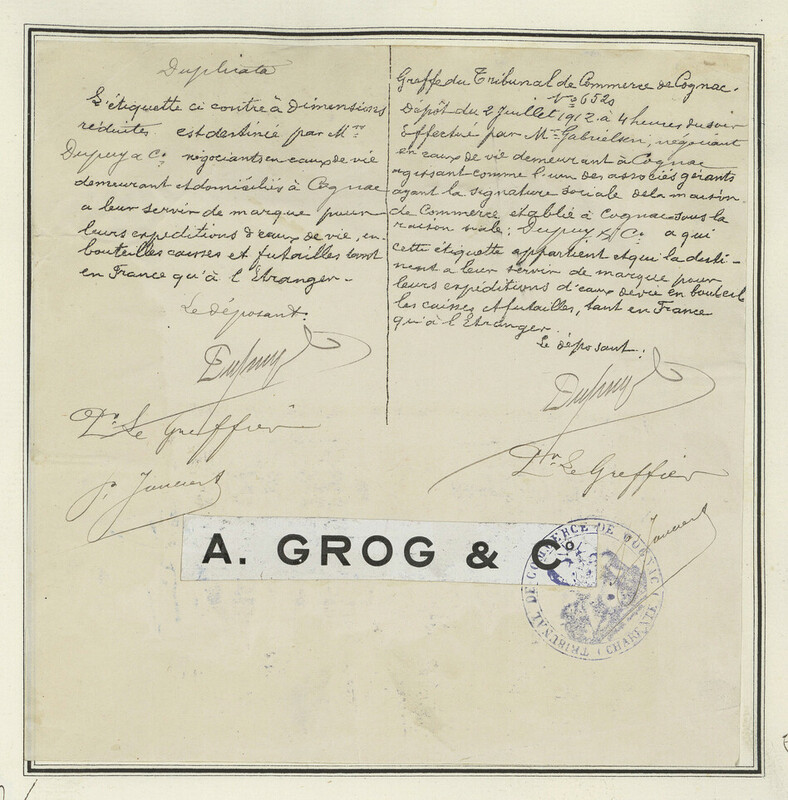 Duplicata
L'étiquette ci contre à dimensions
réduites est destinée par Mrs
Dupuy & Co négociants en eaux de vie
demeurant et domiciliés à Cognac
a leur servir de marque pour
leurs expéditions d'eaux de vie, en
bouteilles caisses et futailles tant
en France qu'à l'Etranger.
Le déposant:
Dupuy
Pr Le Greffier
Greffe du Tribunal de Commerce de Cognac.
No 6520
Dépôt du 2 Juillet 1912 à 4 heures du soir
Effectué par Mr Gabrielsen, négociant
en eaux de vie demeurant à Cognac
agissant comme l'un des associés gérants
ayant la signature sociale de la maison
de Commerce établie à Cognac sous la
raison sociale: Dupuy & Co a qui
cette étiquette appartient et qui la desti-
nent a leur servir de marque pour
leurs expéditions d'eaux de vie en bouteil
les caisses et futailles, tant en France
qu'à l'Etranger.
Le déposant:
Dupuy
Pr Le Greffier
A. GROG & Co
TRIBUNAL DE COMMERCE DE COGNAC (CHARENTE)